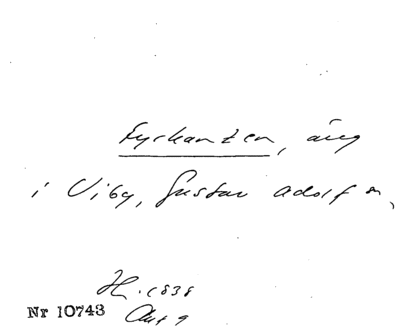 Fyrkanten, äng
i Viby, Gustav Adolf sn,
1838
Nr 10743 Akt 9